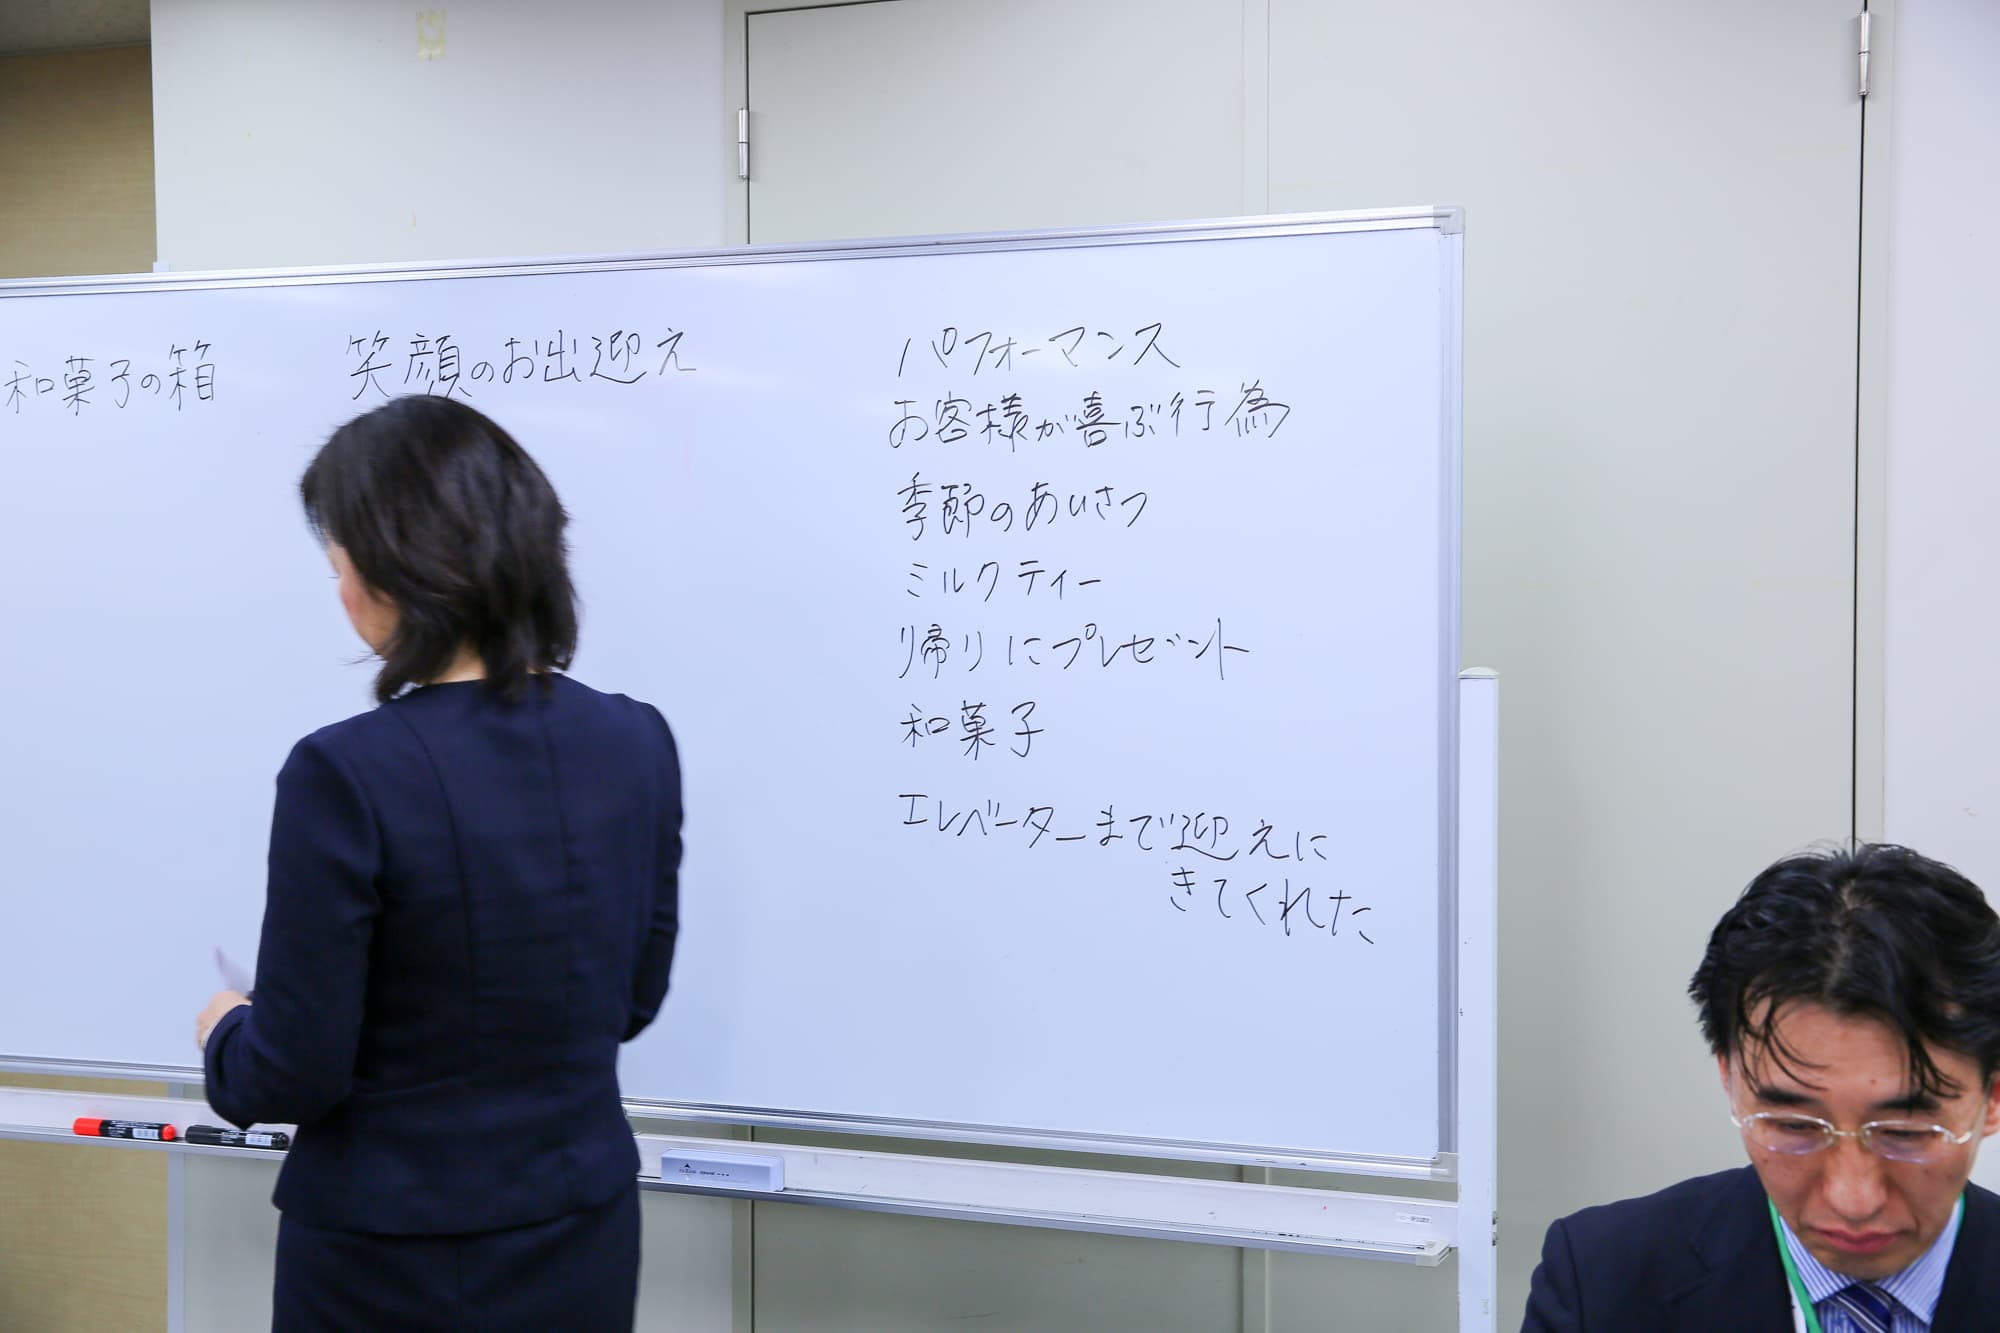 和菓子の箱
笑顔のお出迎え
パフォーマンス
お客様が喜ぶ行為
季節のあいさつ
ミルクティー
帰りにプレゼント
和菓子
エレベーターまで迎えに
きてくれた